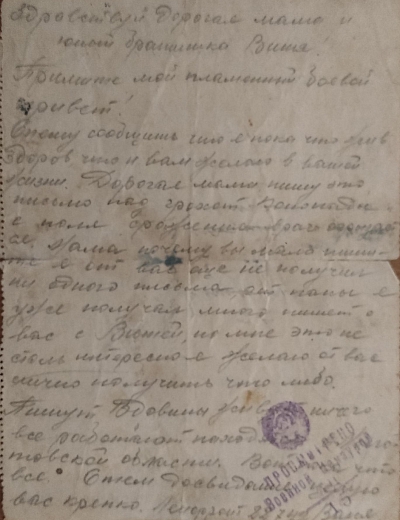 Здравствуй Дорогая мама и
юный братишка Витя!
Примите мой пламенный боевой
привет!
Спешу сообщить что я пока что жив
здоров что и вам желаю в вашей
жизни. Дорогая мама пишу это
письмо под грохот
с поля сражения враг
ся. Мама почему вы мало пиши-
те я от вас еще не получил
ни одного письма от папы я
уже получил много пишет о
вас с Витей, но мне это не
столь интересно я желаю от вас
лично получить что либо.
Пишут Вдовина живет
все работают
товской области. что
все. С тем досвидания
вас крепко.
ПРОСМОТРЕНО
Военной Цензурой